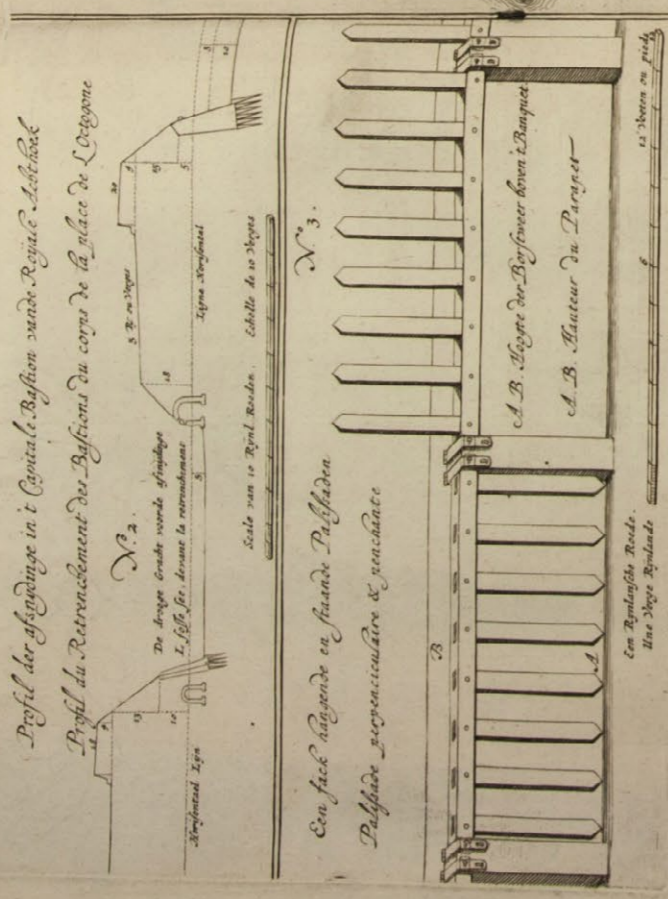 Profil der afsnydinge in't Capitale Bastion vande Royale Achthoek
Profil du Retrenchement des Bastions du corps de la place de L'Octogone
N.º 2.
De drooge Gracht voorde afsnydinge
L fosse sec, devant la retrenchement
Horisontael Lyn
Ligne Horisontal
3 R. ou Verges
20
4
15
5
3
20
18
3
4
15
10
Scale van 10 Rynl. Roeden. Eschelle de 10 Verges
N.º 3.
Een fack hangende en staande Palissaden
Palissade perpenciculaire & penchante
B
A
A.B. Hoogte der Borstweer boven't Banquet
A.B. Hauteur du Parapet
6
12 Voeten ou pieds
Een Rynlansche Roede.
Une Verge Rynlande